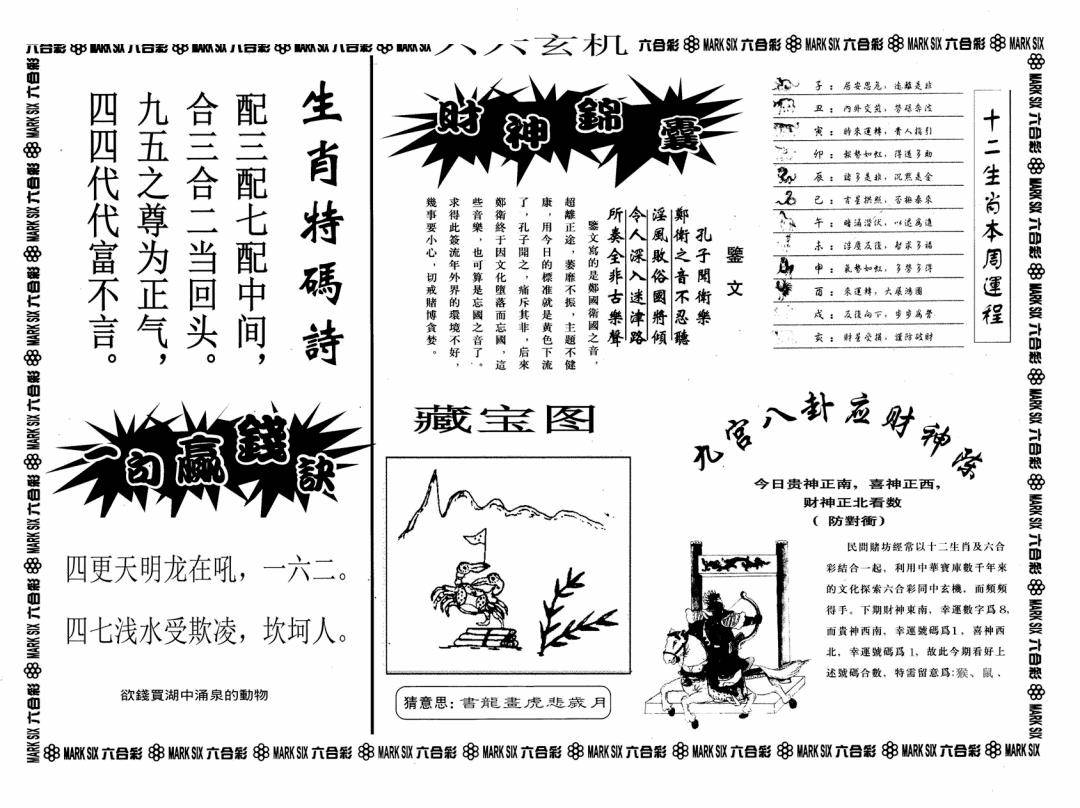 六六玄机
生肖特碼詩
配三配七配中间，
合三合二当回头。
九五之尊为正气，
四四代代富不言。
一句贏錢訣
四更天明龙在吼，一六二。
四七浅水受欺凌，坎坷人。
欲錢買湖中涌泉的動物
財神錦囊
鑒文
孔子聞衛樂
鄭衛之音不忍聽
淫風敗俗國將傾
令人深入迷津路
所奏全非古樂聲
鑒文寫的是鄭國衛國之音，
超離正途，萎靡不振，主題不健
康，用今日的標准就是黃色下流
了，孔子聞之，痛斥其非，后來
鄭衛終于因文化墮落而忘國，這
些音樂，也可算是忘國之音了。
求得此簽流年外界的環境不好，
幾事要小心，切戒賭博貪婪。
十二生肖本周運程
子：居安思危，遠離是非
丑：內外交煎，勞碌奔波
寅：時來運轉，貴人指引
卯：報勢如虹，得道多助
辰：諸多是非，沉默是金
巳：吉星拱照，否極泰來
午：暗湧潛伏，以退爲進
未：浮度反復，
申：氣勢如虹，多勞多得
酉：來運轉，大展鴻圖
戌：反復向下，步步爲營
亥：財星受損，謹防破財
藏宝图
猜意思：書龍畫虎悲歲月
九宮八卦应财神
今日贵神正南，喜神正西，
财神正北看数
（防對衝）
民間賭坊經常以十二生肖及六合
彩結合一起，利用中華寶庫數千年來
的文化探索六合彩同中玄機．而頻頻
得手。下期財神東南，幸運數字爲8，
而貴神西南，幸運號碼爲1，喜神西
北，幸運號碼爲 1，故此今期看好上
述號碼合數，特需留意爲:猴、鼠、
六合彩 MARK SIX 六合彩 MARK SIX 六合彩 MARK SIX 六合彩 MARK SIX